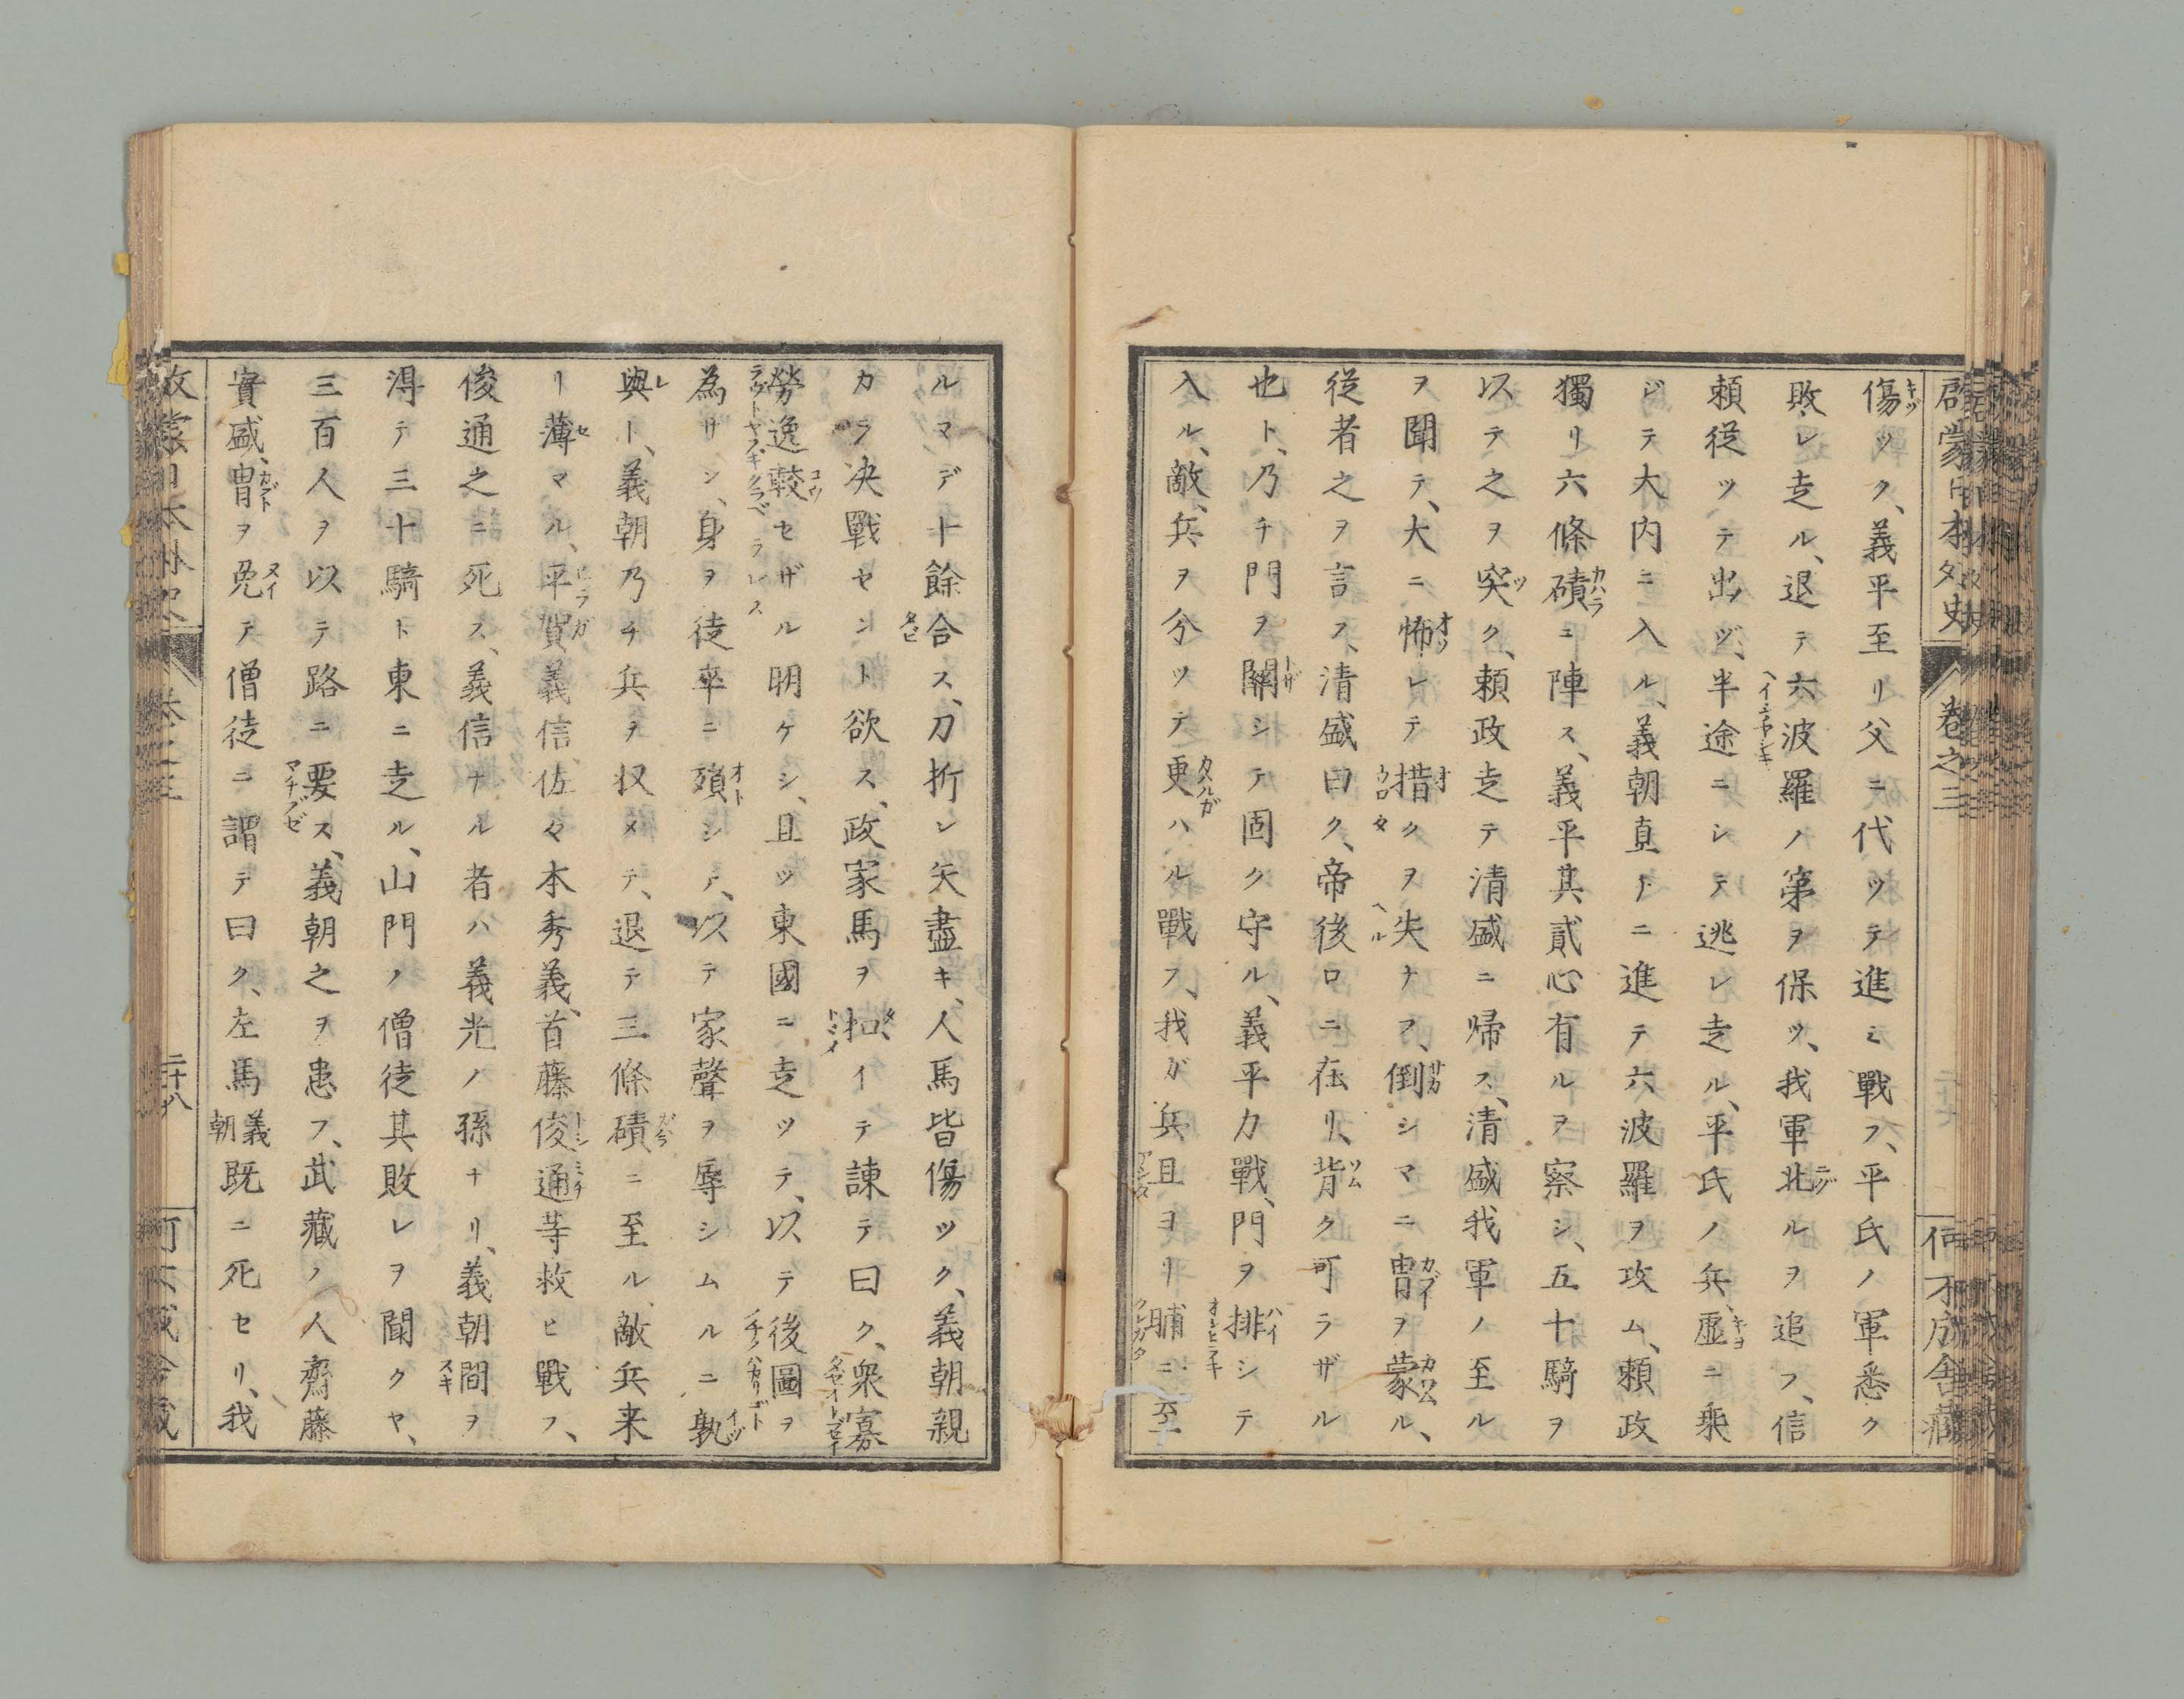 啓蒙日本外史
卷之三
何不成舎藏
傷ツク、義平至リ父ニ代ツテ進ミ戰フ、平氏ノ軍悉ク
敗レ走ル、退テ六波羅ノ第ヲ保ツ、我軍北ルヲ追フ、信
頼從ツテ出ヅ、半途ニシテ逃レ走ル、平氏ノ兵虚ニ乘
ジテ大内ニ入ル、義朝直トニ進テ六波羅ヲ攻ム、頼政
獨リ六條磧ニ陣ス、義平其貳心有ルヲ察シ、五十騎ヲ
以テ之ヲ突ク、頼政走テ清盛ニ帰ス、清盛我軍ノ至ル
ヲ聞テ、大ニ怖レテ措クヲ失ナフ、倒シマニ冑ヲ蒙ル、
從者之ヲ言フ、清盛曰ク、帝後ロニ在リ、背ク可ラザル
也ト、乃チ門ヲ闔シテ固ク守ル、義平力戰、門ヲ排シテ
入ル、敵、兵ヲ分ツテ更ハル戰フ、我ガ兵且ヨリ晡ニ至
ルマデ十餘合ス、刀折レ矢盡キ、人馬皆傷ツク、義朝親
カラ决戰セント欲ス、政家馬ヲ扣イテ諫テ曰ク、衆寡
勞逸較セザル明ケシ、且ツ東國ニ走ツテ、以テ後圖ヲ
為サン、身ヲ徒卒ニ殞シテ、以テ家聲ヲ辱シムルニ孰
與レト、義朝乃チ兵ヲ収メテ、退テ三條磧ニ至ル、敵兵来
リ薄マル、平賀義信、佐々木秀義、首藤俊通等救ヒ戰フ、
俊通之ニ死ス、義信ナル者ハ義光ノ孫ナリ、義朝間ヲ
淂テ三十騎ト東ニ走ル、山門ノ僧徒其敗レヲ聞クヤ、
三百人ヲ以テ路ニ要ス、義朝之ヲ患フ、武藏ノ人齋藤
實盛、冑ヲ免テ僧徒ニ謂テ曰ク、左馬義朝既ニ死セリ、我
卷之三
二十八